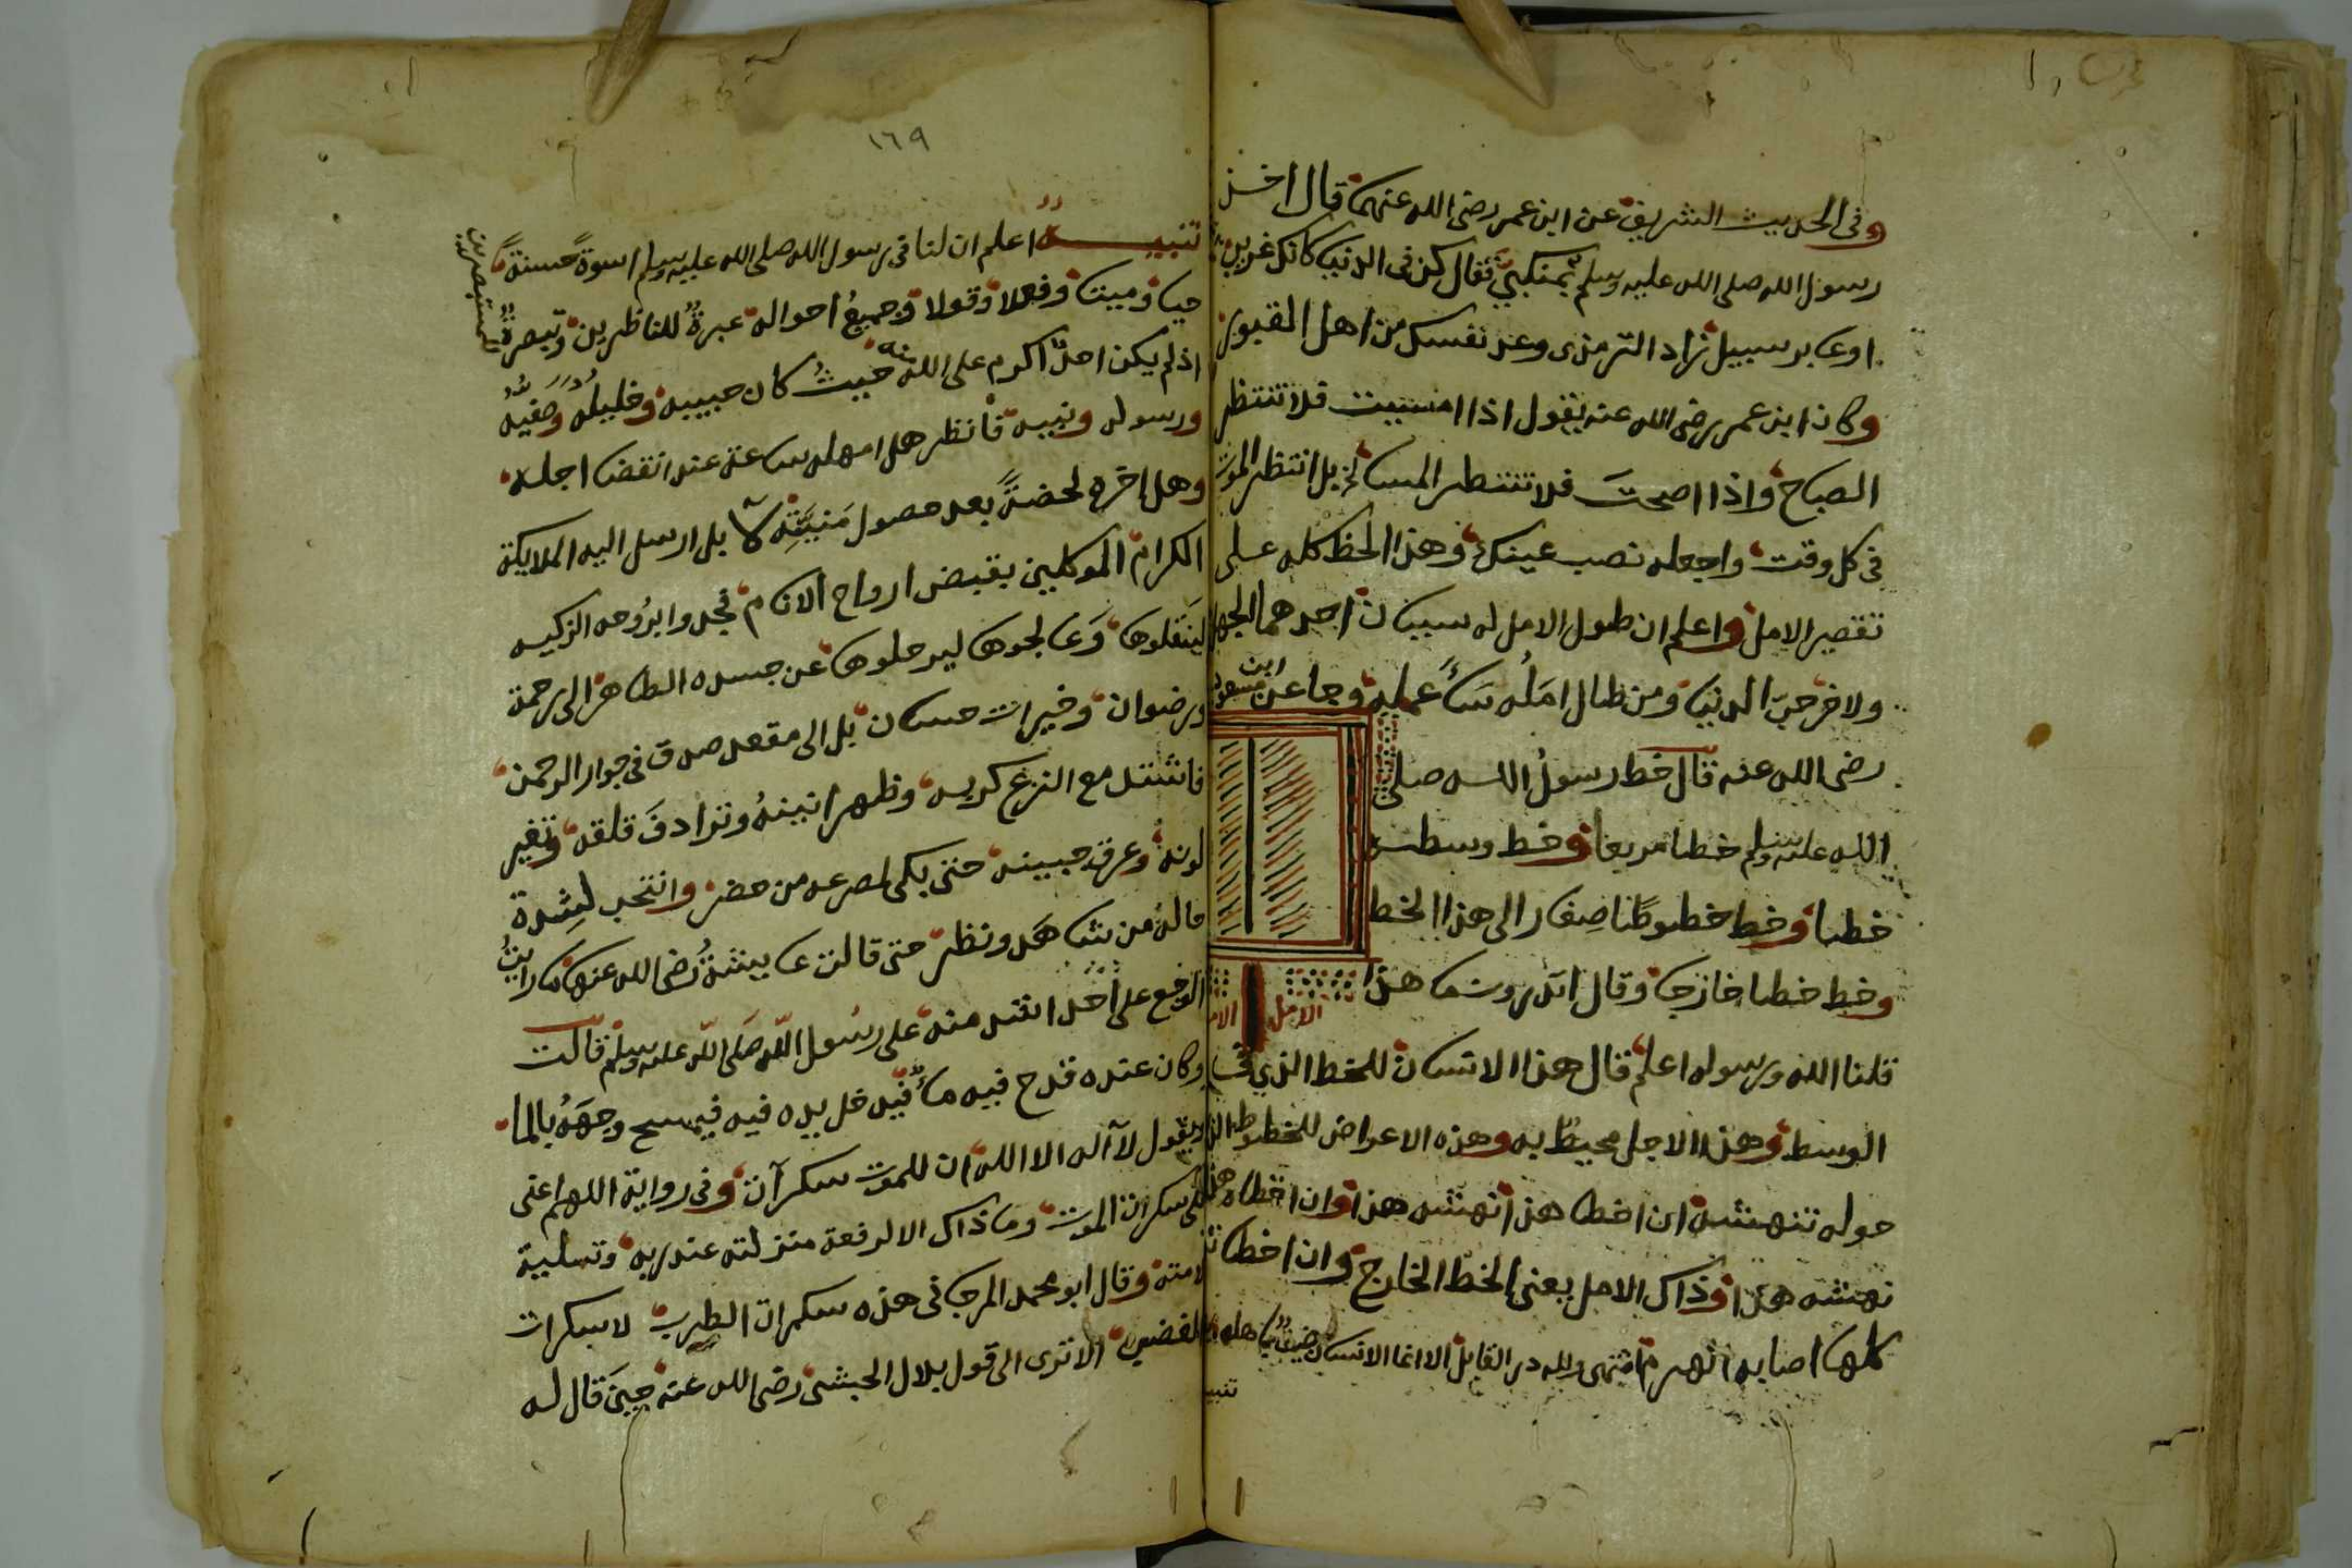 وفى الحديث الشريف عن ابن عمر رضى الله عنهما قال اخذ
رسول الله صلى الله عليه وسلم بمنكبيّ فقال كن فى الدنيا كانك غريب
او عابر سبيل زاد الترمذى وعد نفسك من اهل القبور
وكان ابن عمر رضى الله عنه يقول اذا امسيت فلا تنتظر
الصباح واذا اصبحت فلا تنتظر المسا بل انتظر الموت
فى كل وقت واجعله نصب عينك وهذا الحظ كله على
تقصير الامل واعلم ان طول الامل له سببان احدهما الجهل
ولاخر حبّ الدنيا ومن طال امله سَاءَ عمله وجا عن ابن مسعود
رضى الله عنه قال خط رسول الله صلى
الله عليه وسلم خطا مربعا وخط وسطه
خطا وخط خطوطا صغارا الى هذا الخط
وخط خطا خارجا وقال اتدرون ما هذا
الامل
قلنا الله ورسوله اعلم قال هذا الانسان للخط الذي في
الوسط وهذا الاجل محيطٌ به وهذه الاعراض للخطوط التي
حوله تنهشه ان اخطا هذا نهشه هذا وان اخطاه هذا
نهشه هذا وذاك الامل يعنى الخط الخارج وان اخطات
كلها اصابه الهرم انتهى ولله در القايل الا انما الانسان ضيف باهله
تنبيه
١٦٩
تنبيه اعلم ان لنا فى رسول الله صلى الله عليه وسلم اسوة حسنة
حيا وميتا وفعلا وقولا وجميع احواله عبرةٌ للناظرين وتبصرةٌ للمستبصرين
اذ لم يكن احدٌ اكرم على الله منه حيثُ كان حبيبه وخليله وصفيه
ورسوله ونبيه فانظر هل امهله ساعة عند انقضا اجله
وهل اخره لحضةً بعد حصول مَنِيَّتِه لا بل ارسل اليه الملايكة
الكرام الموكلين بقبض ارواح الانام فجدوا بروحه الزكيه
لينقلوها وعالجوها ليرحلوها عن جسده الطاهر الى رحمة
ورضوان وخيرات حسان بل الى مقعد صدق فى جوار الرحمن
فاشتد مع النزع كربه وظهر انينهُ وترادفَ قلقه وتغير
لونه وعرق جبينه حتى بكى لمصرعه من حضر وانتحب لشدة
حاله من شاهد ونظر حتى قالت عايشة رضى الله عنها ما رايتُ
الوجع على احد اشد منه على رسول الله صلى الله عليه وسلم قالت
وكان عنده قدح فيه ماء فيدخل يده فيه فيمسح وجهَهُ بالما
ويقول لا آله الا الله ان للموت سكرات وفى رواية اللهم اعنى
على سكرات الموت وما ذاك الا لرفعة منزلته عند ربه وتسلية
لامته وقال ابو محمد المرجانى هذه سكرات الطرب لا سكرات
الا ترى الى قول بلال الحبشى رضى الله عنه حين قال له